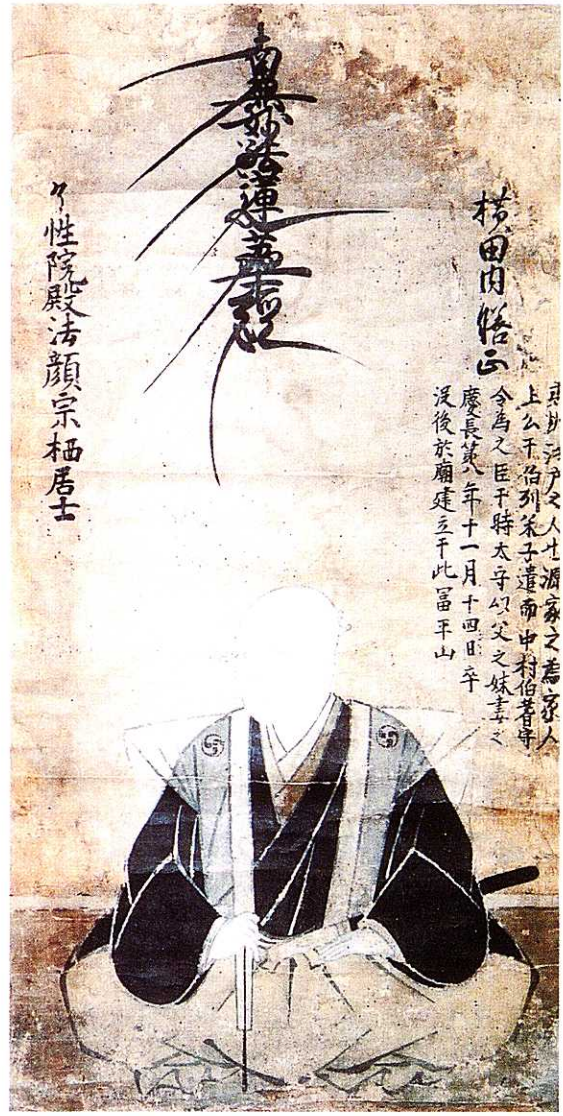 横田内膳正
之人也源家之家人
上公于伯列米子遣而中村伯耆守
令為之臣于時太守以父之妹妻之
慶長第八年十一月十四日卒
没後於廟建立于此冨平山
南無妙法蓮華経
々性院殿法顔宗栖居士